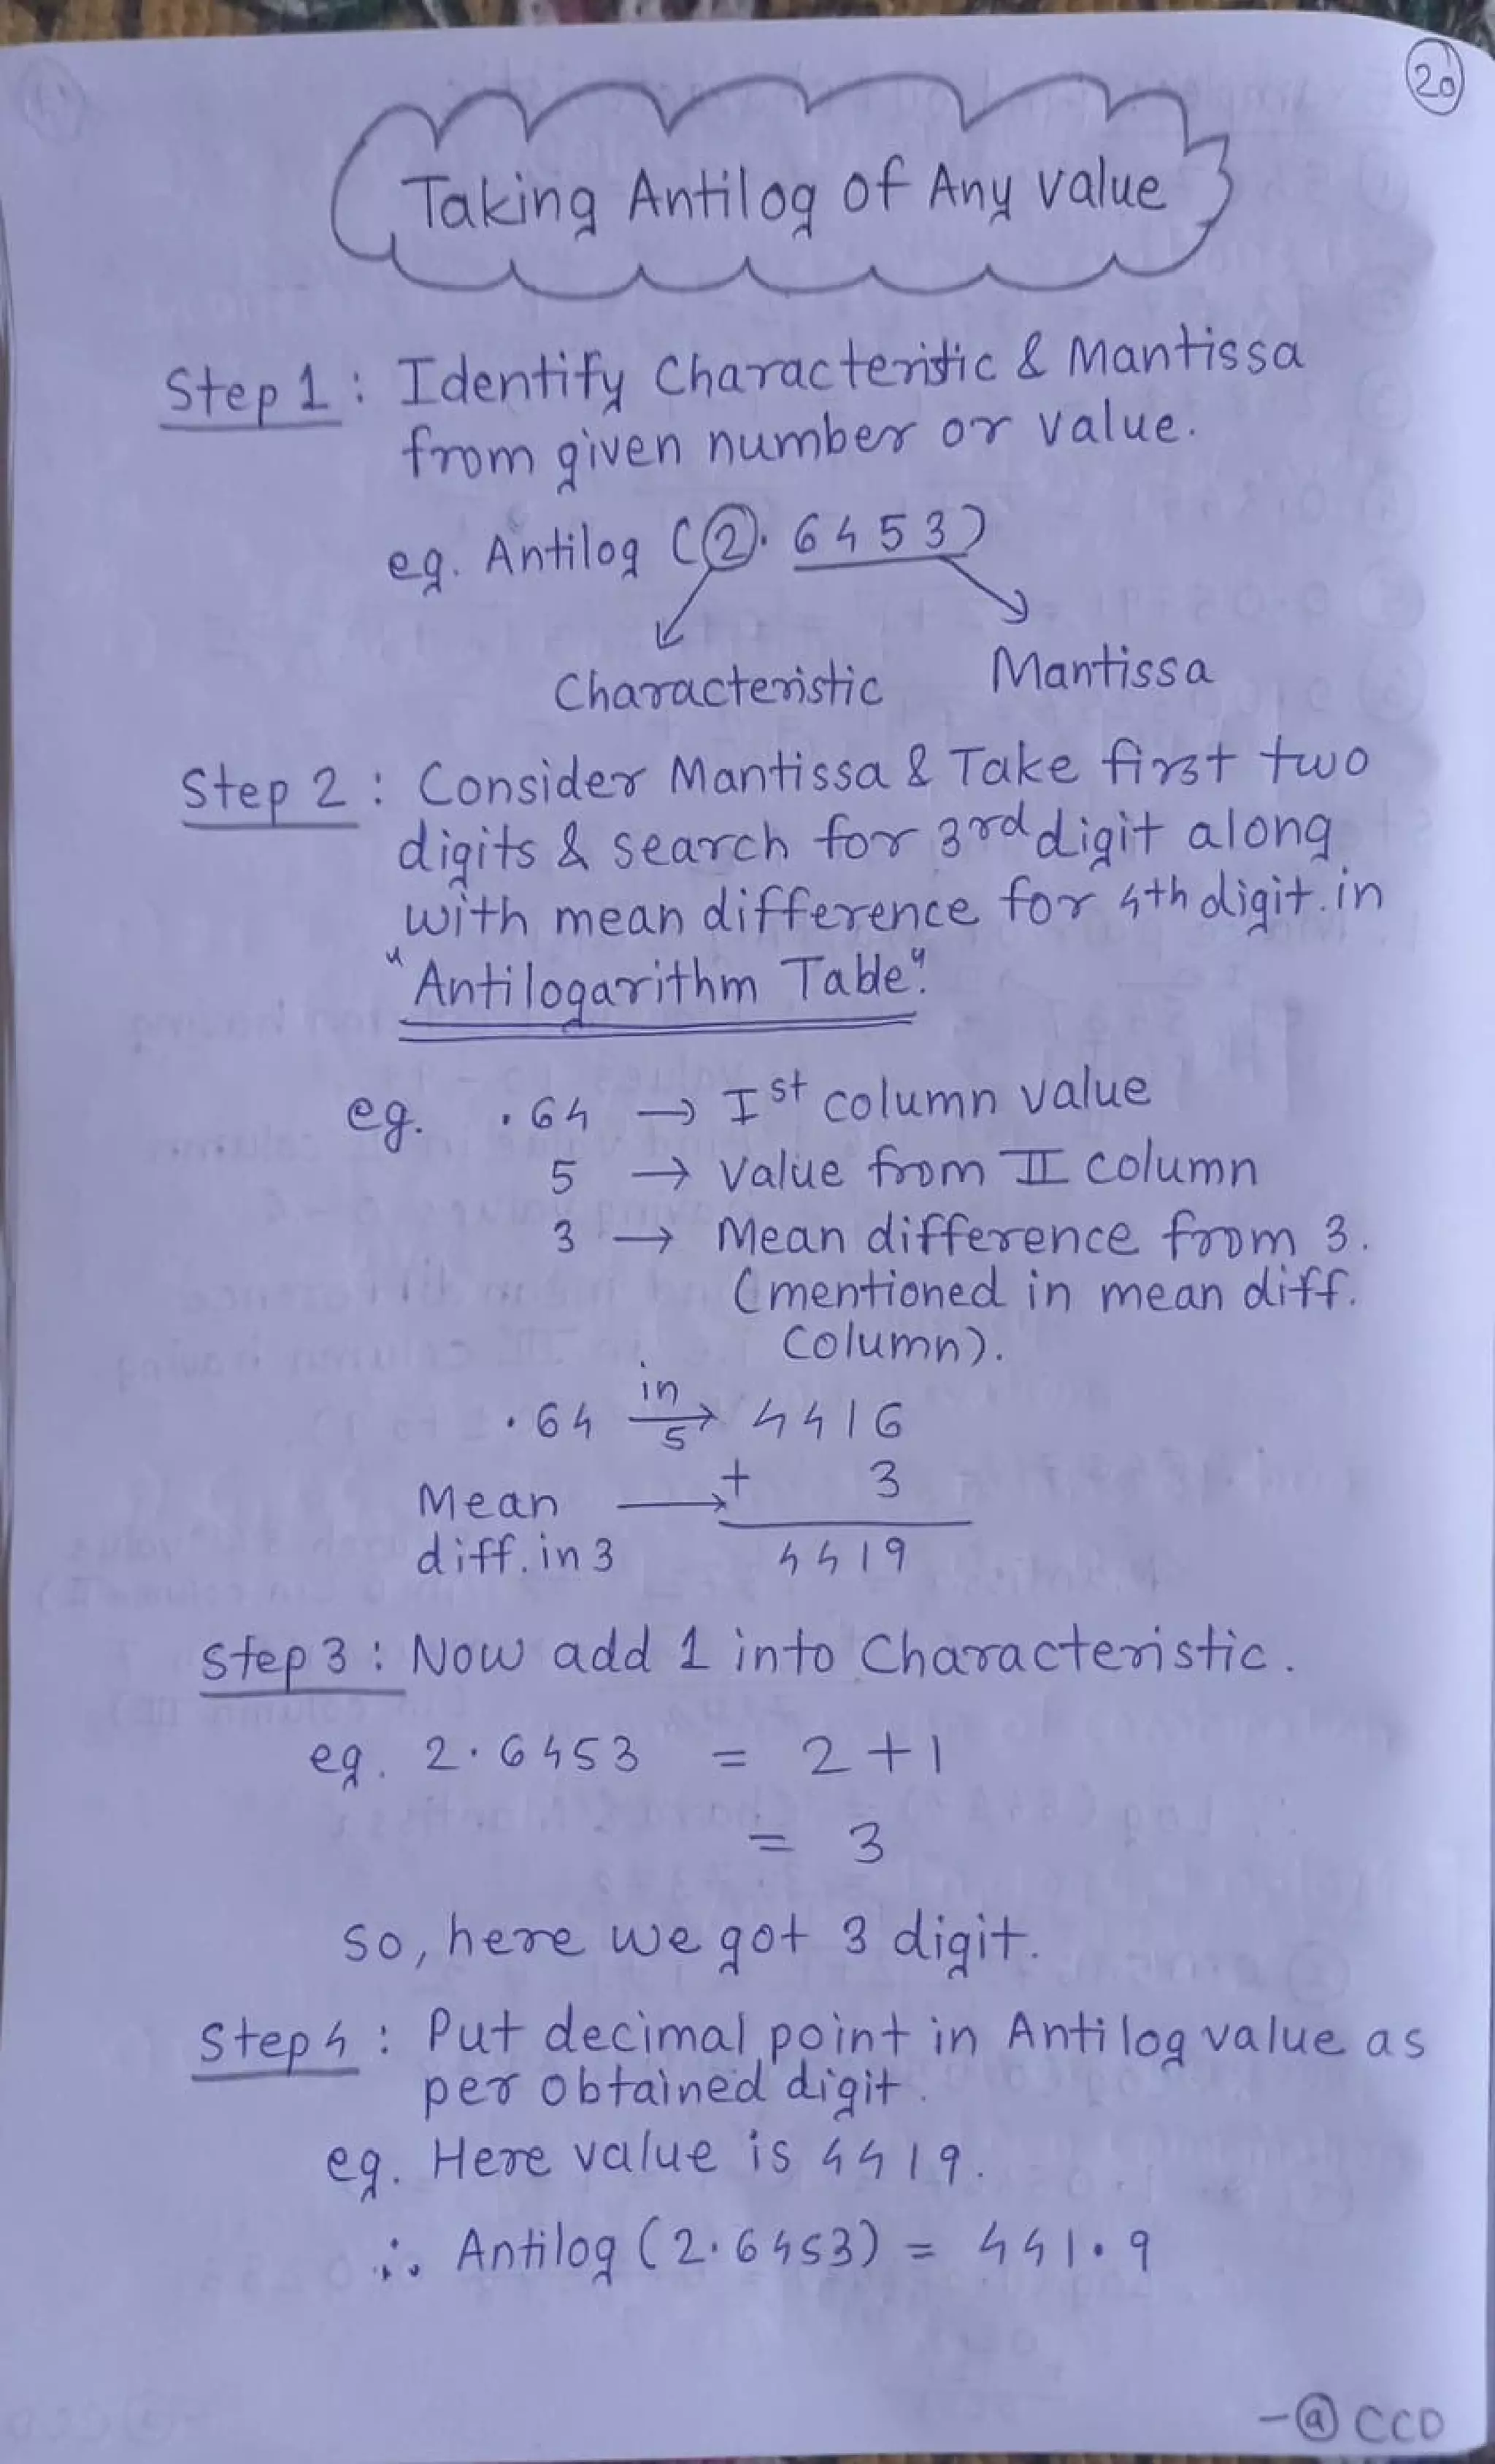 20
Taking Antilog of Any value
Step 1 : Identify Characteristic & Mantissa
from given number or value.
eg. Antilog (2. 6453)
Characteristic Mantissa
Step 2 : Consider Mantissa & Take first two
digits & search for 3rd digit along
with mean difference for 4th digit. in
"Antilogarithm Table".
eg. .64 → Ist column value
5 → Value from II column
3 → Mean difference from 3.
(mentioned in mean diff.
Column).
.64 in/5 → 4416
Mean → + 3
diff. in 3 4419
Step 3 : Now add 1 into Characteristic.
eg. 2.6453 = 2+1
= 3
So, here we got 3 digit.
Step 4 : Put decimal point in Antilog value as
per obtained digit.
eg. Here value is 4419.
∴ Antilog (2.6453) = 441.9
-@CCD